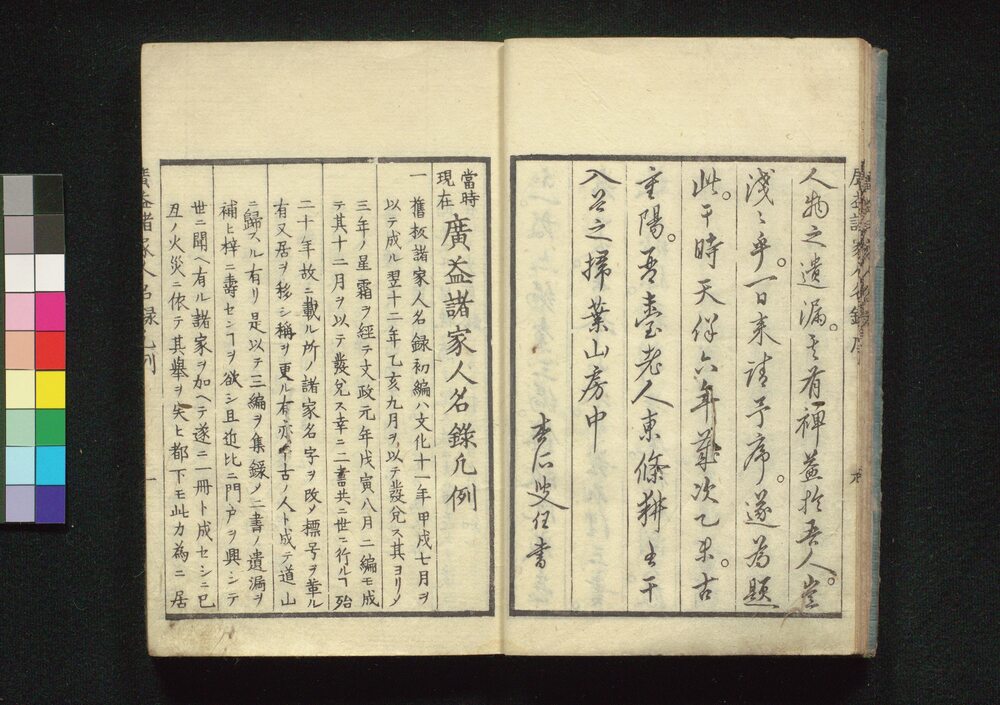 人物之遺漏。其有裨益於吾人。豈
淺〻乎。一日来請予序。遂為題
此。于時天保六年歳次乙未古
重陽。吾臺老人東條耕書于
入谷之掃葉山房中
書
當時
現在
廣益諸家人名錄凡例
一 舊板諸家人名録初編ハ文化十一年甲戌七月ヲ
以テ成ル翌十二年乙亥九月ヲ以テ發兌ス其ヨリノ
三年ノ星霜ヲ經テ文政元年戊寅八月二編モ成
テ其十二月ヲ以テ發兌ス幸ニ二書共ニ世ニ行ルヿ殆
二十年故ニ載ル所ノ諸家名字ヲ改メ標号ヲ革ル
有又居ヲ移シ稱ヲ更ル有亦今古ノ人ト成テ道山
ニ歸スル有リ是以テ三編ヲ集録メ二書ノ遺漏ヲ
補ヒ梓ニ壽センヿヲ欲シ且近比ニ門户ヲ興シテ
世ニ聞ヘ有ル諸家ヲ加ヘテ遂ニ一冊ト成セシニ已
丑ノ火災ニ依テ其擧ヲ失ヒ都下モ此カ為ニ居
廣益諸家人名録凡例
一